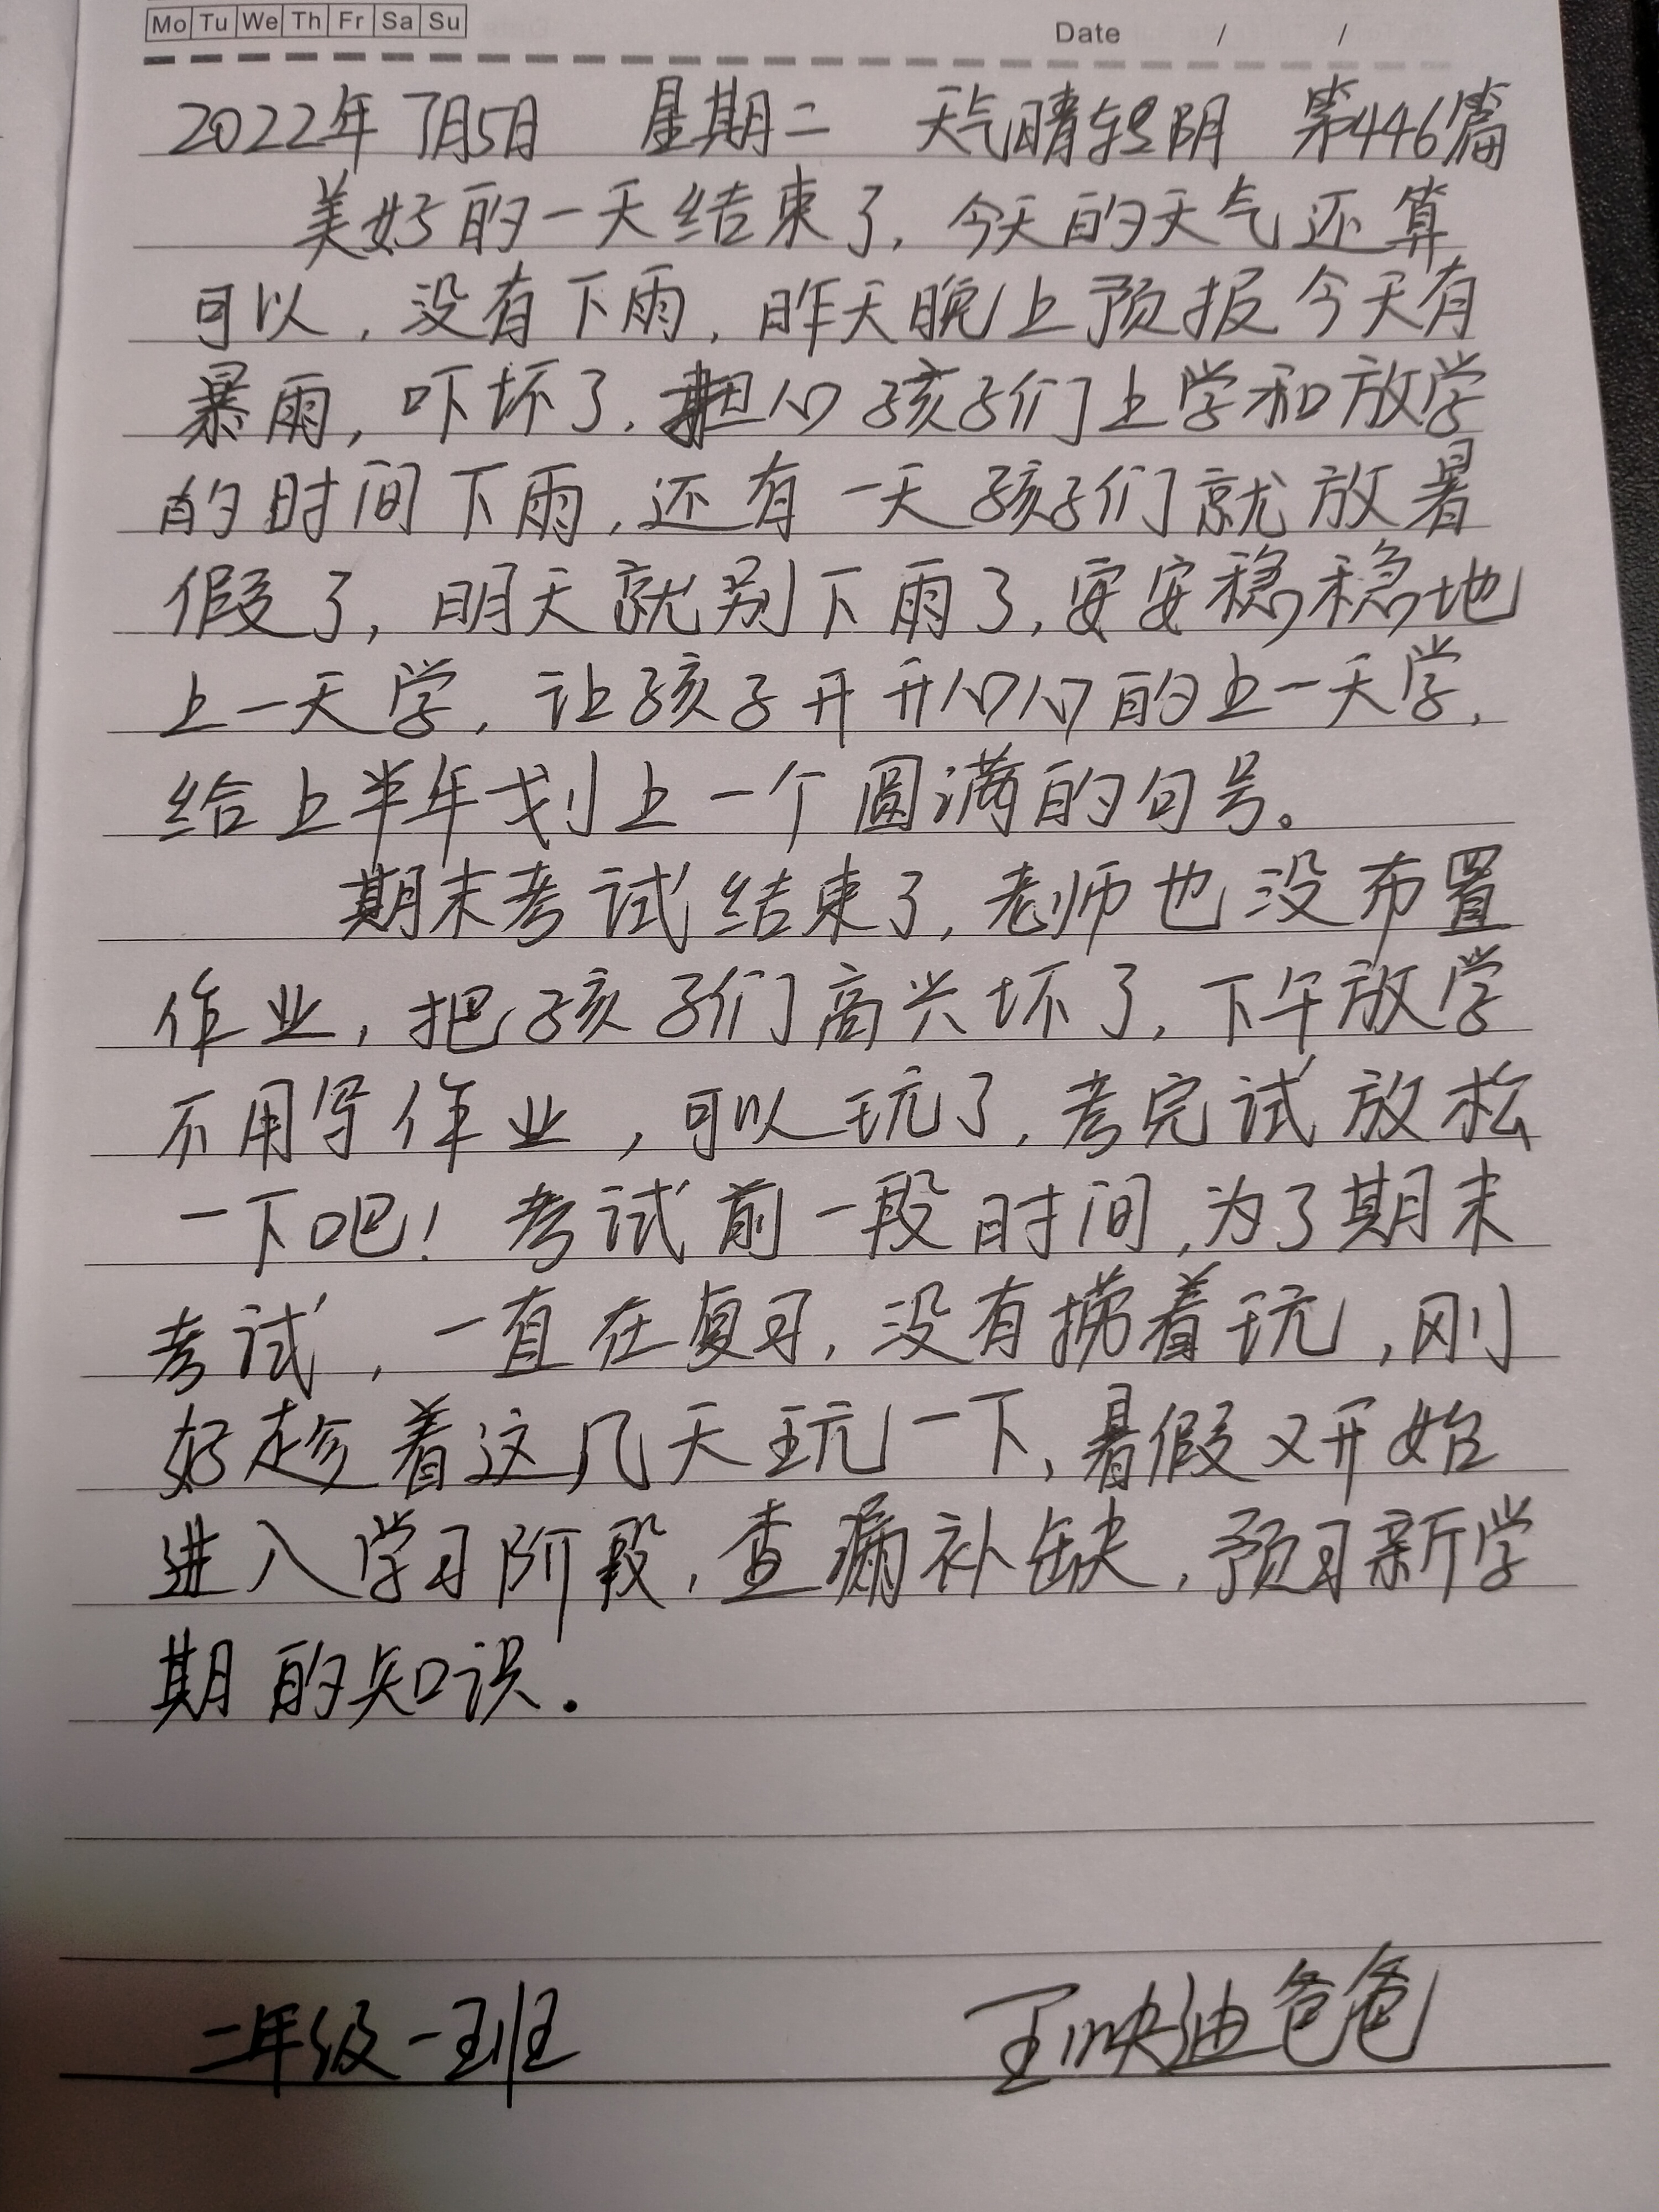 Mo Tu We Th Fr Sa Su
Date / /
2022年7月5日 星期二 天气晴转阴 第446篇
美好的一天结束了,今天的天气还算
可以,没有下雨,昨天晚上预报今天有
暴雨,吓坏了,担心孩子们上学和放学
的时间下雨,还有一天孩子们就放暑
假了,明天就别下雨了,安安稳稳地
上一天学,让孩子开开心心的上一天学,
给上半年划上一个圆满的句号。
期末考试结束了,老师也没布置
作业,把孩子们高兴坏了,下午放学
不用写作业,可以玩了,考完试放松
一下吧!考试前一段时间,为了期末
考试,一直在复习,没有捞着玩,刚
好趁着这几天玩一下,暑假又开始
进入学习阶段,查漏补缺,预习新学
期的知识.
二年级一班
王映迪爸爸